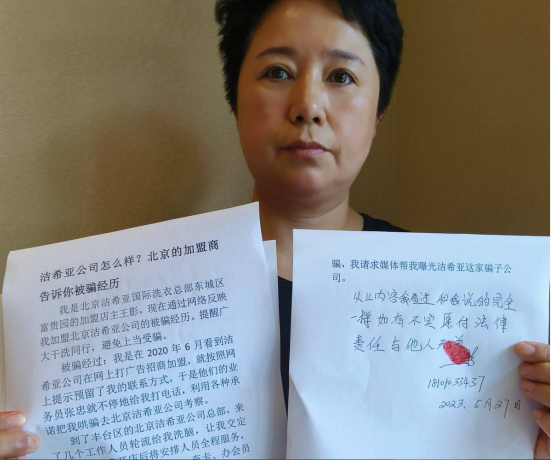 洁希亚公司怎么样？北京的加盟商
告诉你被骗经历
我是北京洁希亚国际洗衣总部东城区
富贵园的加盟店主王影，现在通过网络反映
我加盟北京洁希亚公司的被骗经历，提醒广
大干洗同行，避免上当受骗。
被骗经过：我是在 2020 年 6 月看到洁
希亚公司在网上打广告招商加盟，就按照网
上提示预留了我的联系方式，于是他们的业
务员张忠就不停地给我打电话，利用各种承
诺把我哄骗去北京洁希亚公司考察。
到了丰台区的北京洁希亚公司总部，来
了几个工作人员轮流给我洗脑，让我交定
开店后将安排人员全程服务，
充卡、办会员
骗，我请求媒体帮我曝光洁希亚这家骗子公
司。
以上内容我看过和我说的完全
一样如有不实愿付法律
责任与他人无关
2023. 5月27日